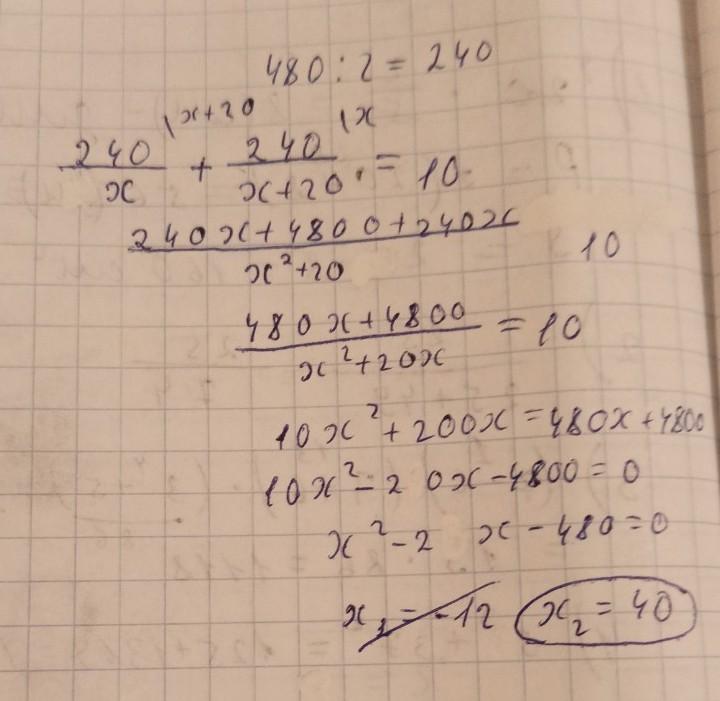 480 : 2 = 240
240/x |x+20 + 240/(x+20) |x = 10
(240x+4800+240x)/(x²+20) 10
(480x+4800)/(x²+20x) = 10
10x²+200x=480x+4800
10x²-2 0x-4800=0
x²-2 x-480=0
x₁=-12 x₂=40